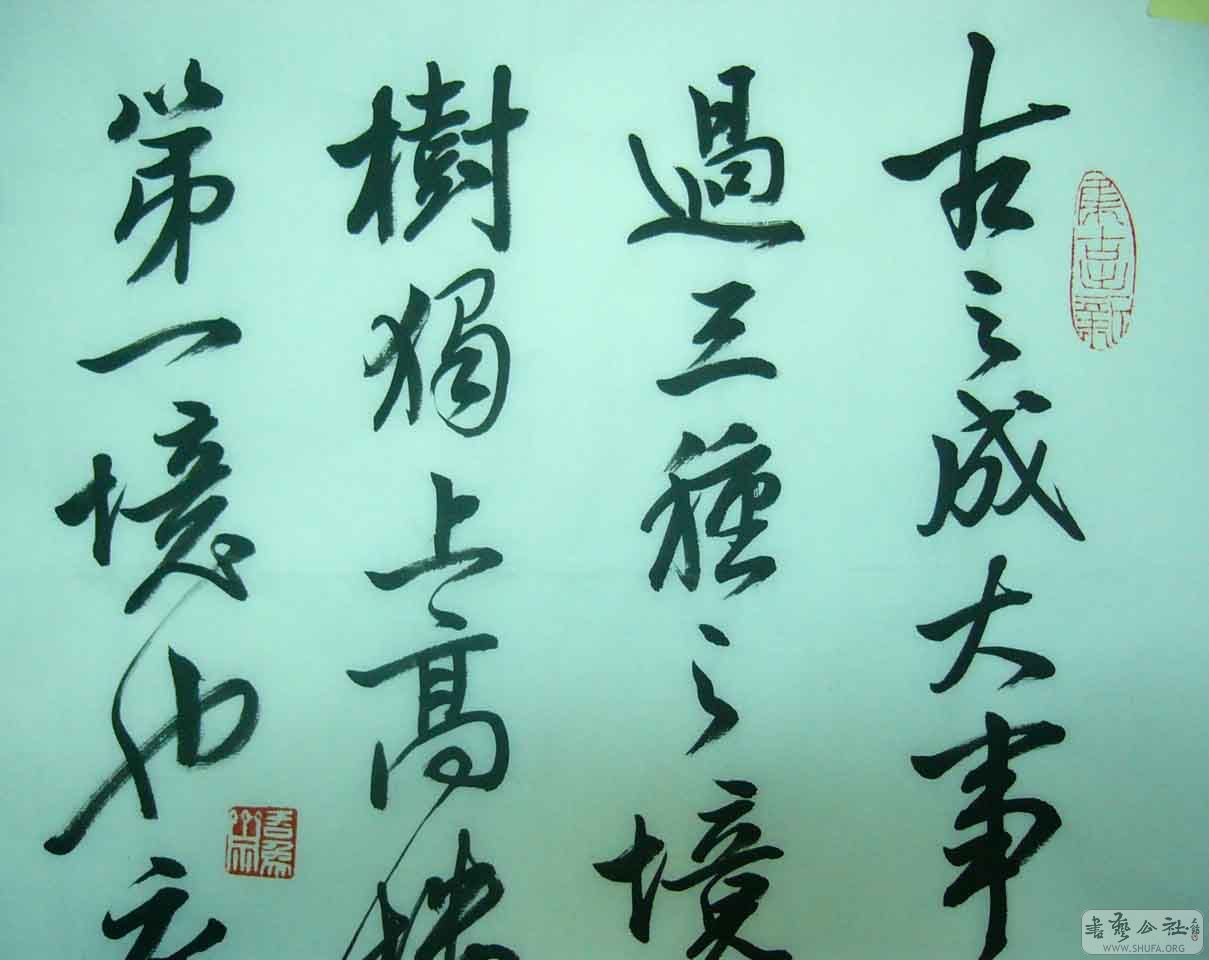 古之成大事
過三種之境
樹獨上高樓
第一境也衣
書藝公社
WWW.SHUFA.ORG